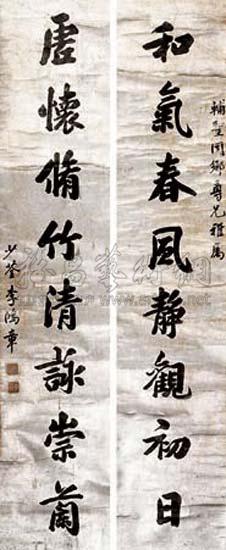 輔同鄉尊兄雅屬
和氣春風静觀初日
虛懷脩竹清詠崇蘭
少荃李鴻章